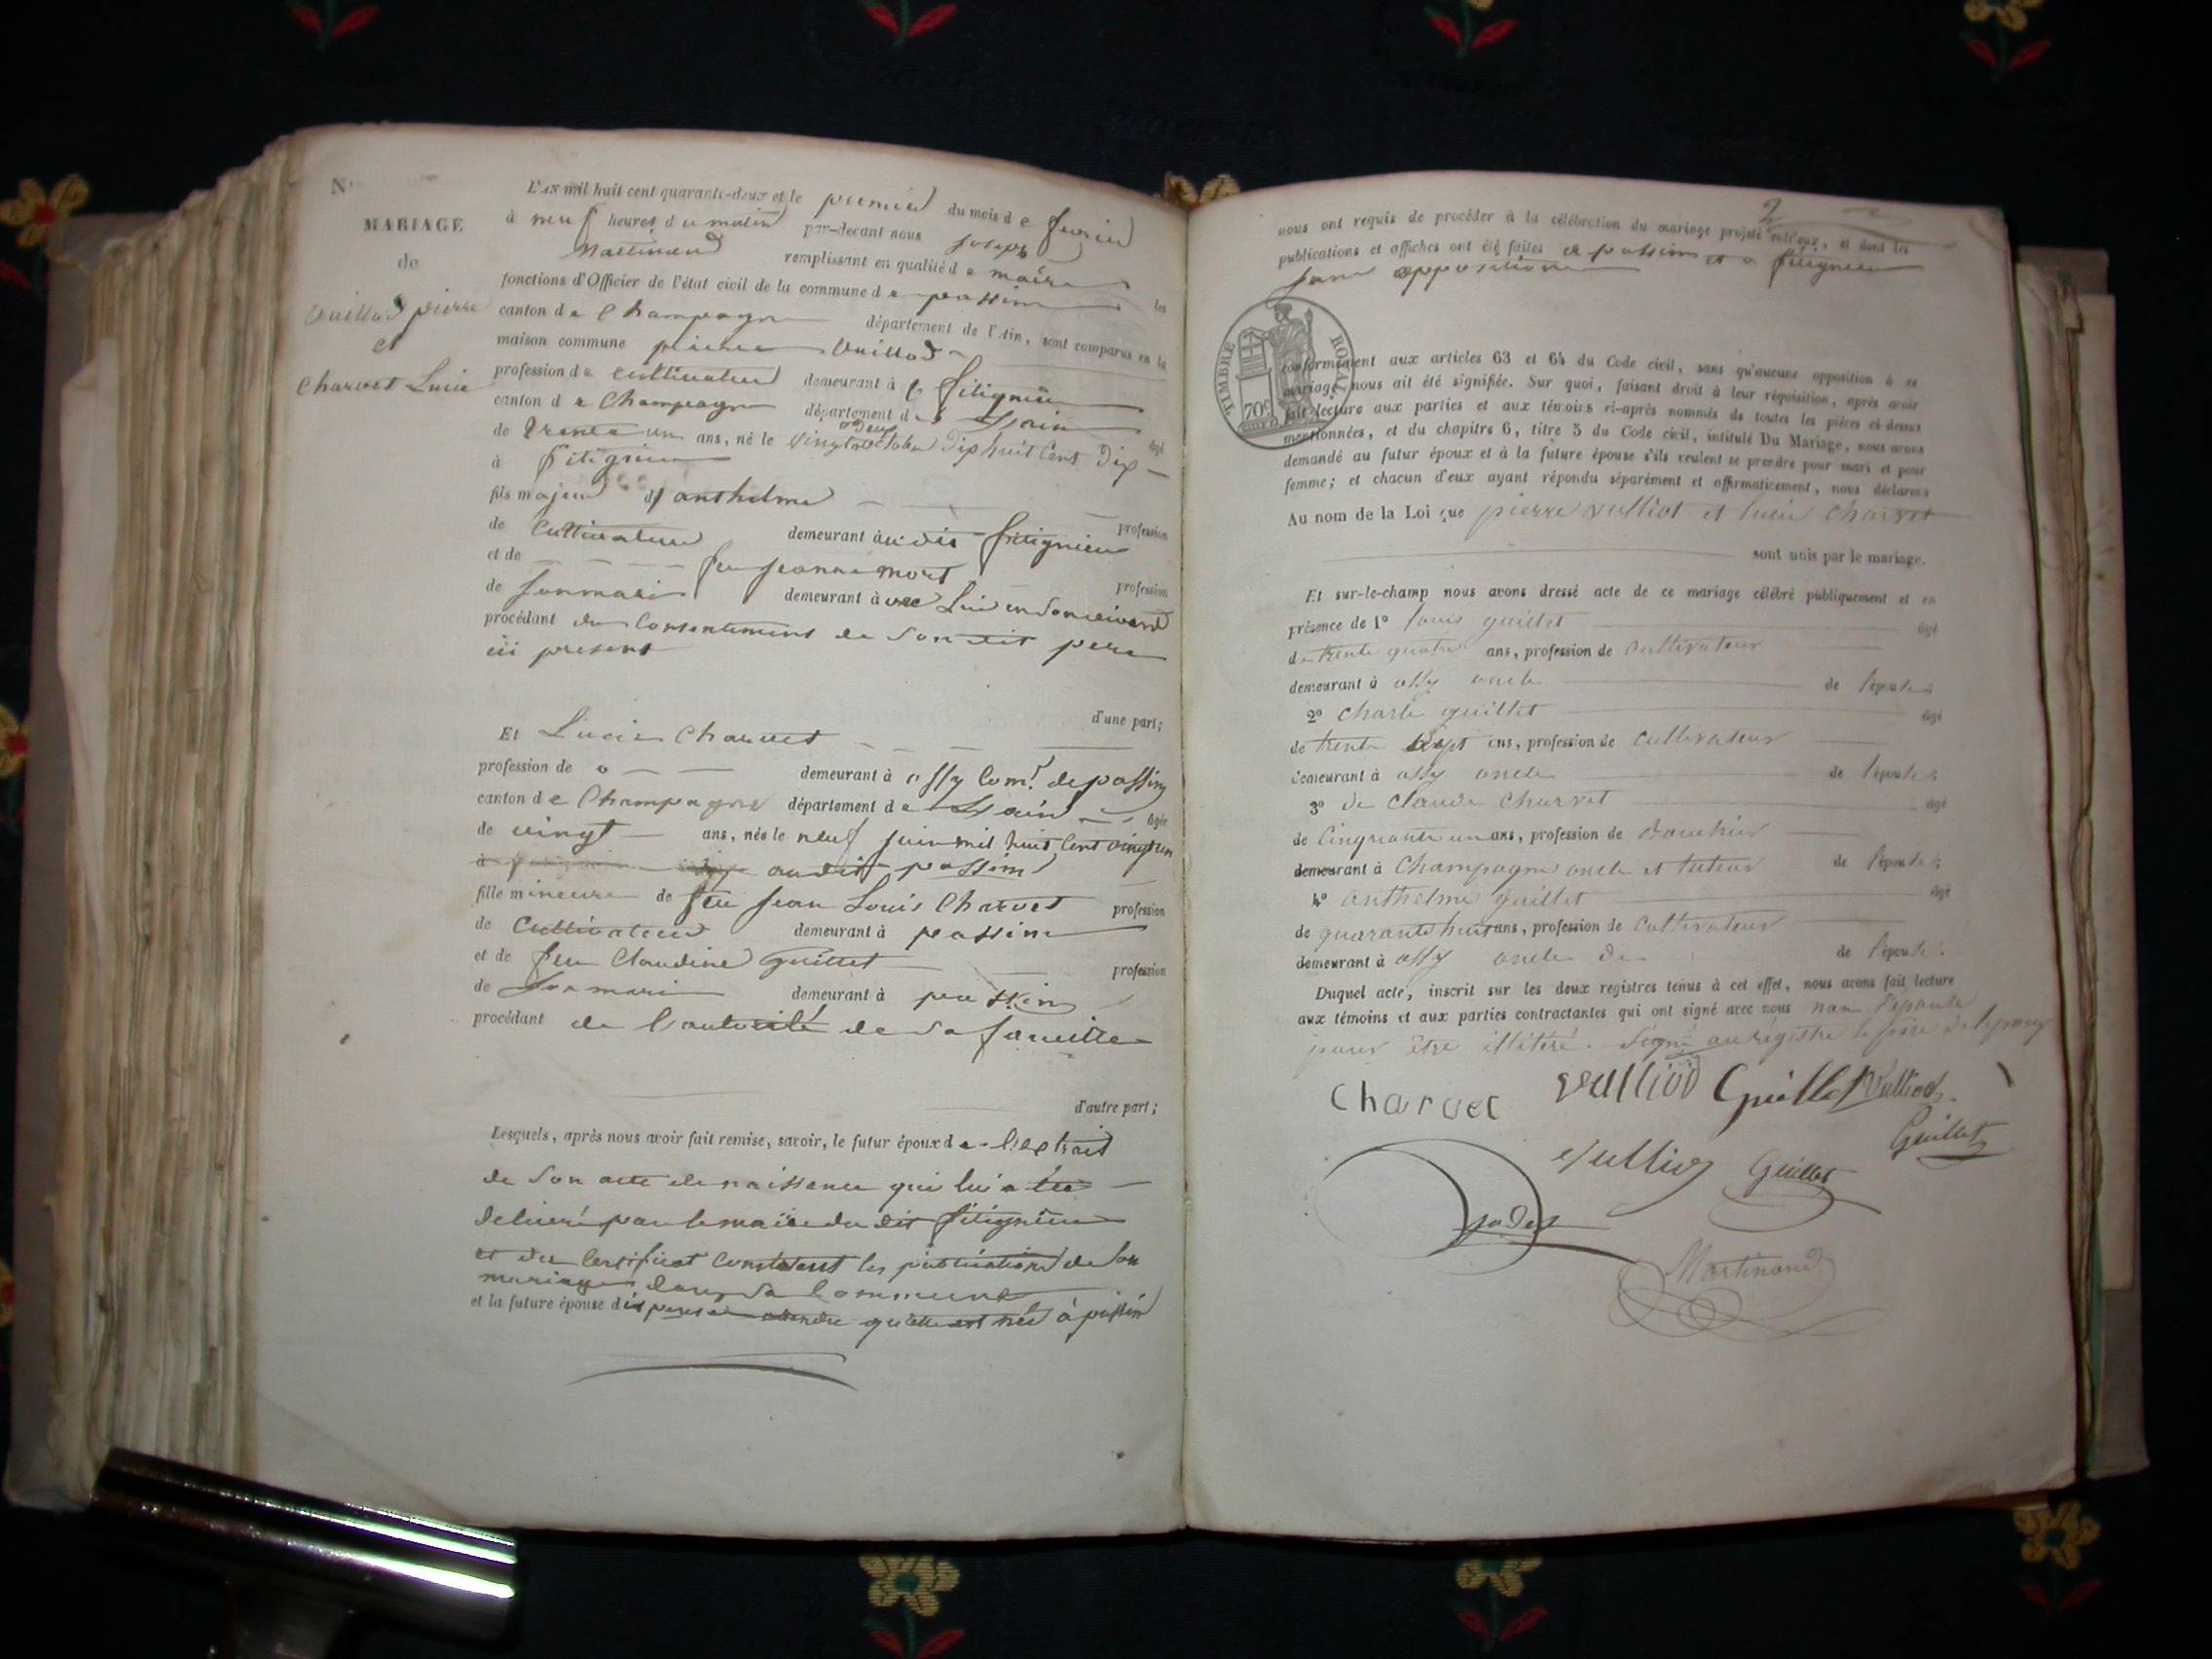 N°
MARIAGE
de
Vuillod pierre
et
Charvet Lucie
L'AN mil huit cent quarante-deux et le premier du mois de fevrier
à neuf heures du matin par-devant nous joseph
Martinand remplissant en qualité de maire les
fonctions d'Officier de l'état civil de la commune de passin
canton de Champagne département de l'Ain, sont comparus en la
maison commune pierre Vuillod
profession de cultivateur demeurant à fitignieu
canton de Champagne département de Lain âgé
de trente un ans, né le vingt deux octobre dix huit cent dix
à fitignieu
fils majeur d'anthelme profession
de Cultivateur demeurant au dit fitignieu
et de feu jeanne mort profession
de son mari demeurant avec Lui en son vivant
procédant du Consentement de Son dit pere
ici present
d'une part;
Et Lucie Charvet
profession de o demeurant à assy Com. de passin
canton de Champagne département de Lain âgée
de vingt ans, née le neuf juin mil huit Cent vingt un
à au dit passin
fille mineure de feu jean Louis Charvet profession
de Cultivateur demeurant à passin
et de feu Claudine Guillet profession
de Son mari demeurant à passin
procédant de l'autorité de Sa famille
d'autre part;
Lesquels, après nous avoir fait remise, savoir, le futur époux de l'extrait
de Son acte de naissance qui lui a été
delivré par le maire du dit fitignieu
et du Certificat Constatant les publications de Son
mariage dans Sa Commune
et la future épouse dispensée attendu qu'elle est née à passin
2
nous ont requis de procéder à la célébration du mariage projeté entr'eux, et dont les
publications et affiches ont été faites a passin et a fitignieu
sans opposition
TIMBRE ROYAL
70c
conformément aux articles 63 et 64 du Code civil, sans qu'aucune opposition à ce
mariage nous ait été signifiée. Sur quoi, faisant droit à leur réquisition, après avoir
fait lecture aux parties et aux témoins ci-après nommés de toutes les pièces ci-dessus
mentionnées, et du chapitre 6, titre 5 du Code civil, intitulé Du Mariage, nous avons
demandé au futur époux et à la future épouse s'ils veulent se prendre pour mari et pour
femme; et chacun d'eux ayant répondu séparément et affirmativement, nous déclarons
Au nom de la Loi que pierre vulliot et lucie Charvet
sont unis par le mariage.
Et sur-le-champ nous avons dressé acte de ce mariage célébré publiquement et en
présence de 1° louis guillet âgé
de trente quatre ans, profession de Cultivateur
demeurant à assy oncle de l'épouse
2° charle guillet âgé
de trente sept ans, profession de Cultivateur
demeurant à assy oncle de l'épouse
3° de Claude Charvet âgé
de Cinquante un ans, profession de
demeurant à Champagne oncle et tuteur de l'épouse
4° anthelme guillet âgé
de quarante huit ans, profession de Cultivateur
demeurant à assy oncle de de l'épouse.
Duquel acte, inscrit sur les deux registres tenus à cet effet, nous avons fait lecture
aux témoins et aux parties contractantes qui ont signé avec nous non l'épouse
pour être illitéré. Signé au régistre le père de l'époux
Charvet vulliod Guillet Vulliod
Vulliod Guillet Guillet
Martinand